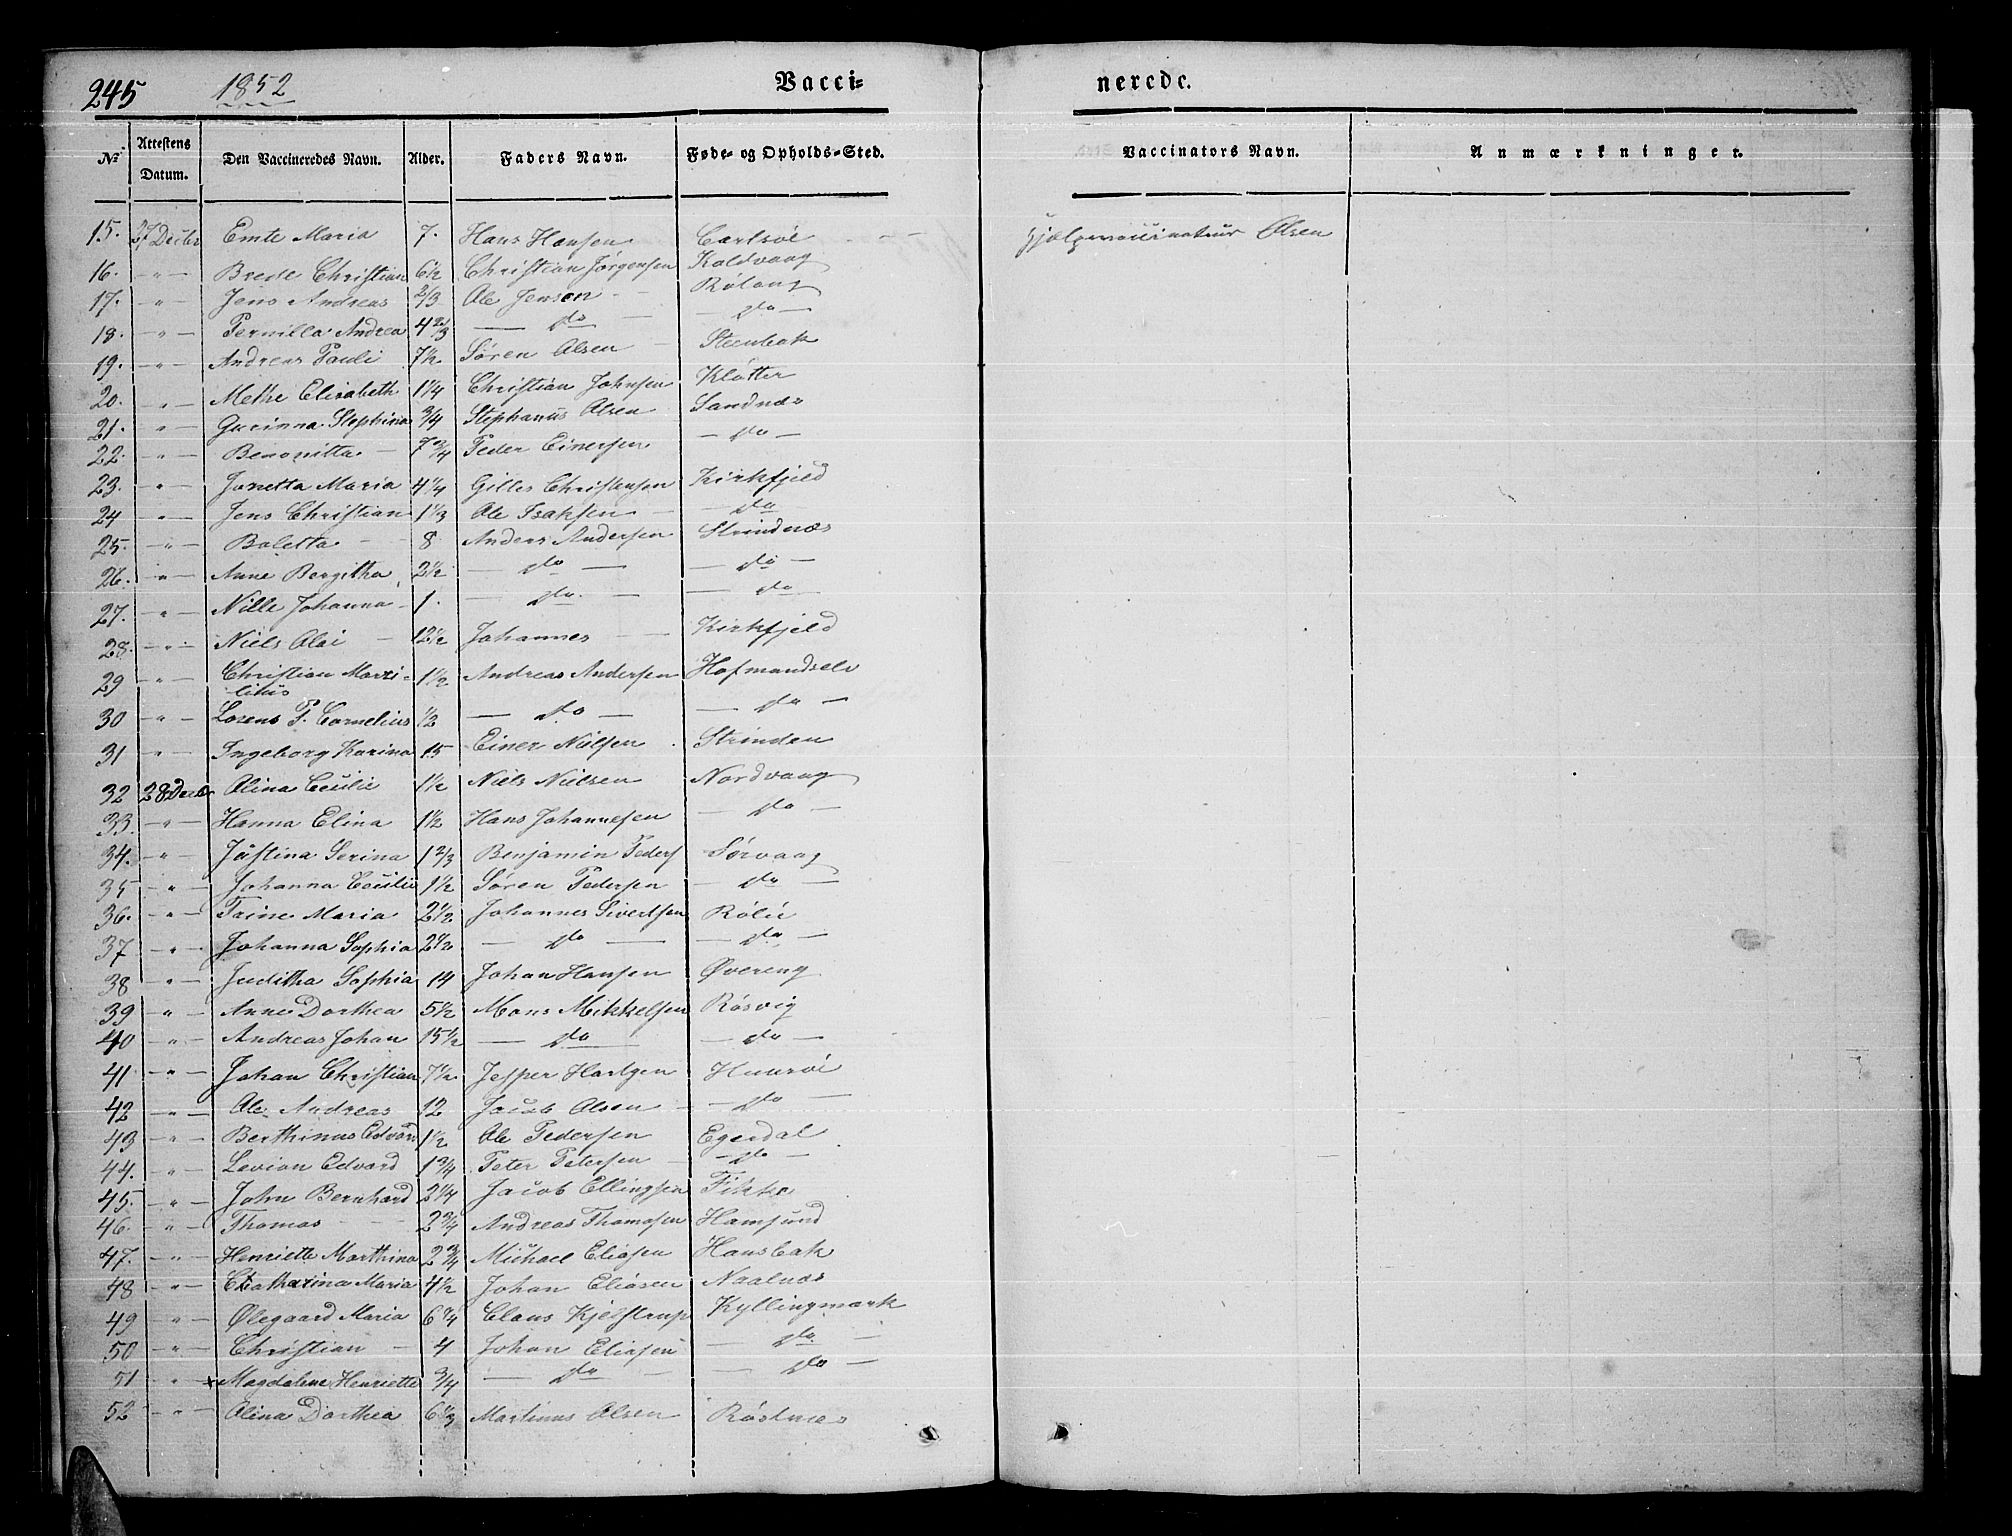 245 1852 Vacci- nerede.
No Attestens Datum. Den Vaccineredes Navn. Alder. Faders Navn. Føde- og Opholds-Sted. Vaccinators Navn. Anmærkninger.
15. 27 Decber Emte Maria 7. Hans Hansen Carlsöe Hjælpevaccinateur Olsen
16. -"- Brede Christian 6½ Christian Jørgensen Koldvaag
17. -"- Jens Andreas 2/3 Ole Jensen Rölang
18. -"- Pernilla Andrea 4 2/3 — do — — do —
19. -"- Andreas Pauli 7½ Søren Olsen Steenbak
20. -"- Methe Elisabeth 1¼ Christian Johnsen Kløtter
21. -"- Gurinna Stephina ¾ Stephanus Olsen Sandnæs
22. -"- Benonitta 7¾ Peder Einersen — do —
23. -"- Jonetta Maria 4¼ Gilles Christensen Kirkfjeld
24 -"- Jens Christian 1⅓ Ole Isaksen — do
25. -"- Boletta 8 Anders Andersen Strindnæs
26. -"- Anne Bergitha 2½ — do — — do —
27. -"- Nille Johanna 1. — do. — — do —
28. -"- Niels Olai 12½ Johannes Kirkfjeld
29 -"- Christian Marsi-litius 1½ Andreas Andersen Hofmandselv
30 -"- Lorens P. Cornelius ½ — do — — do —
31 -"- Ingeborg Karina 15 Einer Nielsen Strinden
32 28 Decbr Olina Cecilie 1½ Niels Nielsen Nordvaag
33. -"- Hanna Elina 1½ Hans Johannesen — do —
34. -"- Justina Serina 1 2/3 Benjamin Peders Sørvaag
35 -"- Johanna Cecilie 1½ Søren Pedersen — do —
36. -"- Trine Maria 2½ Johannes Sivertsen Rölie
37 -"- Johanna Sophia 2½ — do — — do —
38 -"- Juditha Sophia 14 Johan Hansen Øvereng
39 -"- Anne Dorthea 5½ Mons Mikkelsen Røsvig
40 -"- Andreas Johan 15½ — do — — do —
41 -"- Johan Christian 7½ Jesper Hartgen
42 -"- Ole Andreas 12 Jacob Olsen — do —
43 -"- Berthinus Edvard 1½ Ole Pedersen Egerdal
44. -"- Levion Edvard 1¾ Peter Petersen — do —
45. -"- John Bernhard 2¼ Jacob Ellingsen Fikke
46. -"- Thomas 2¾ Andreas Thomasen Hamsund
47. -"- Henriette Marthina 2¾ Michael Eliasen Hansbak
48 -"- Chatharina Maria 4½ Johan Eliasen Naalnæs
49 -"- Ølegaard Maria 6¼ Claus Kjelstrup Kyllingmark
50 -"- Christian 4 Johan Eliasen — do —
51 -"- x Magdalene Henriette ¾ — do — — do —
52 -"- Olina Dorthea 6⅓ Martinus Olsen Röstnæs